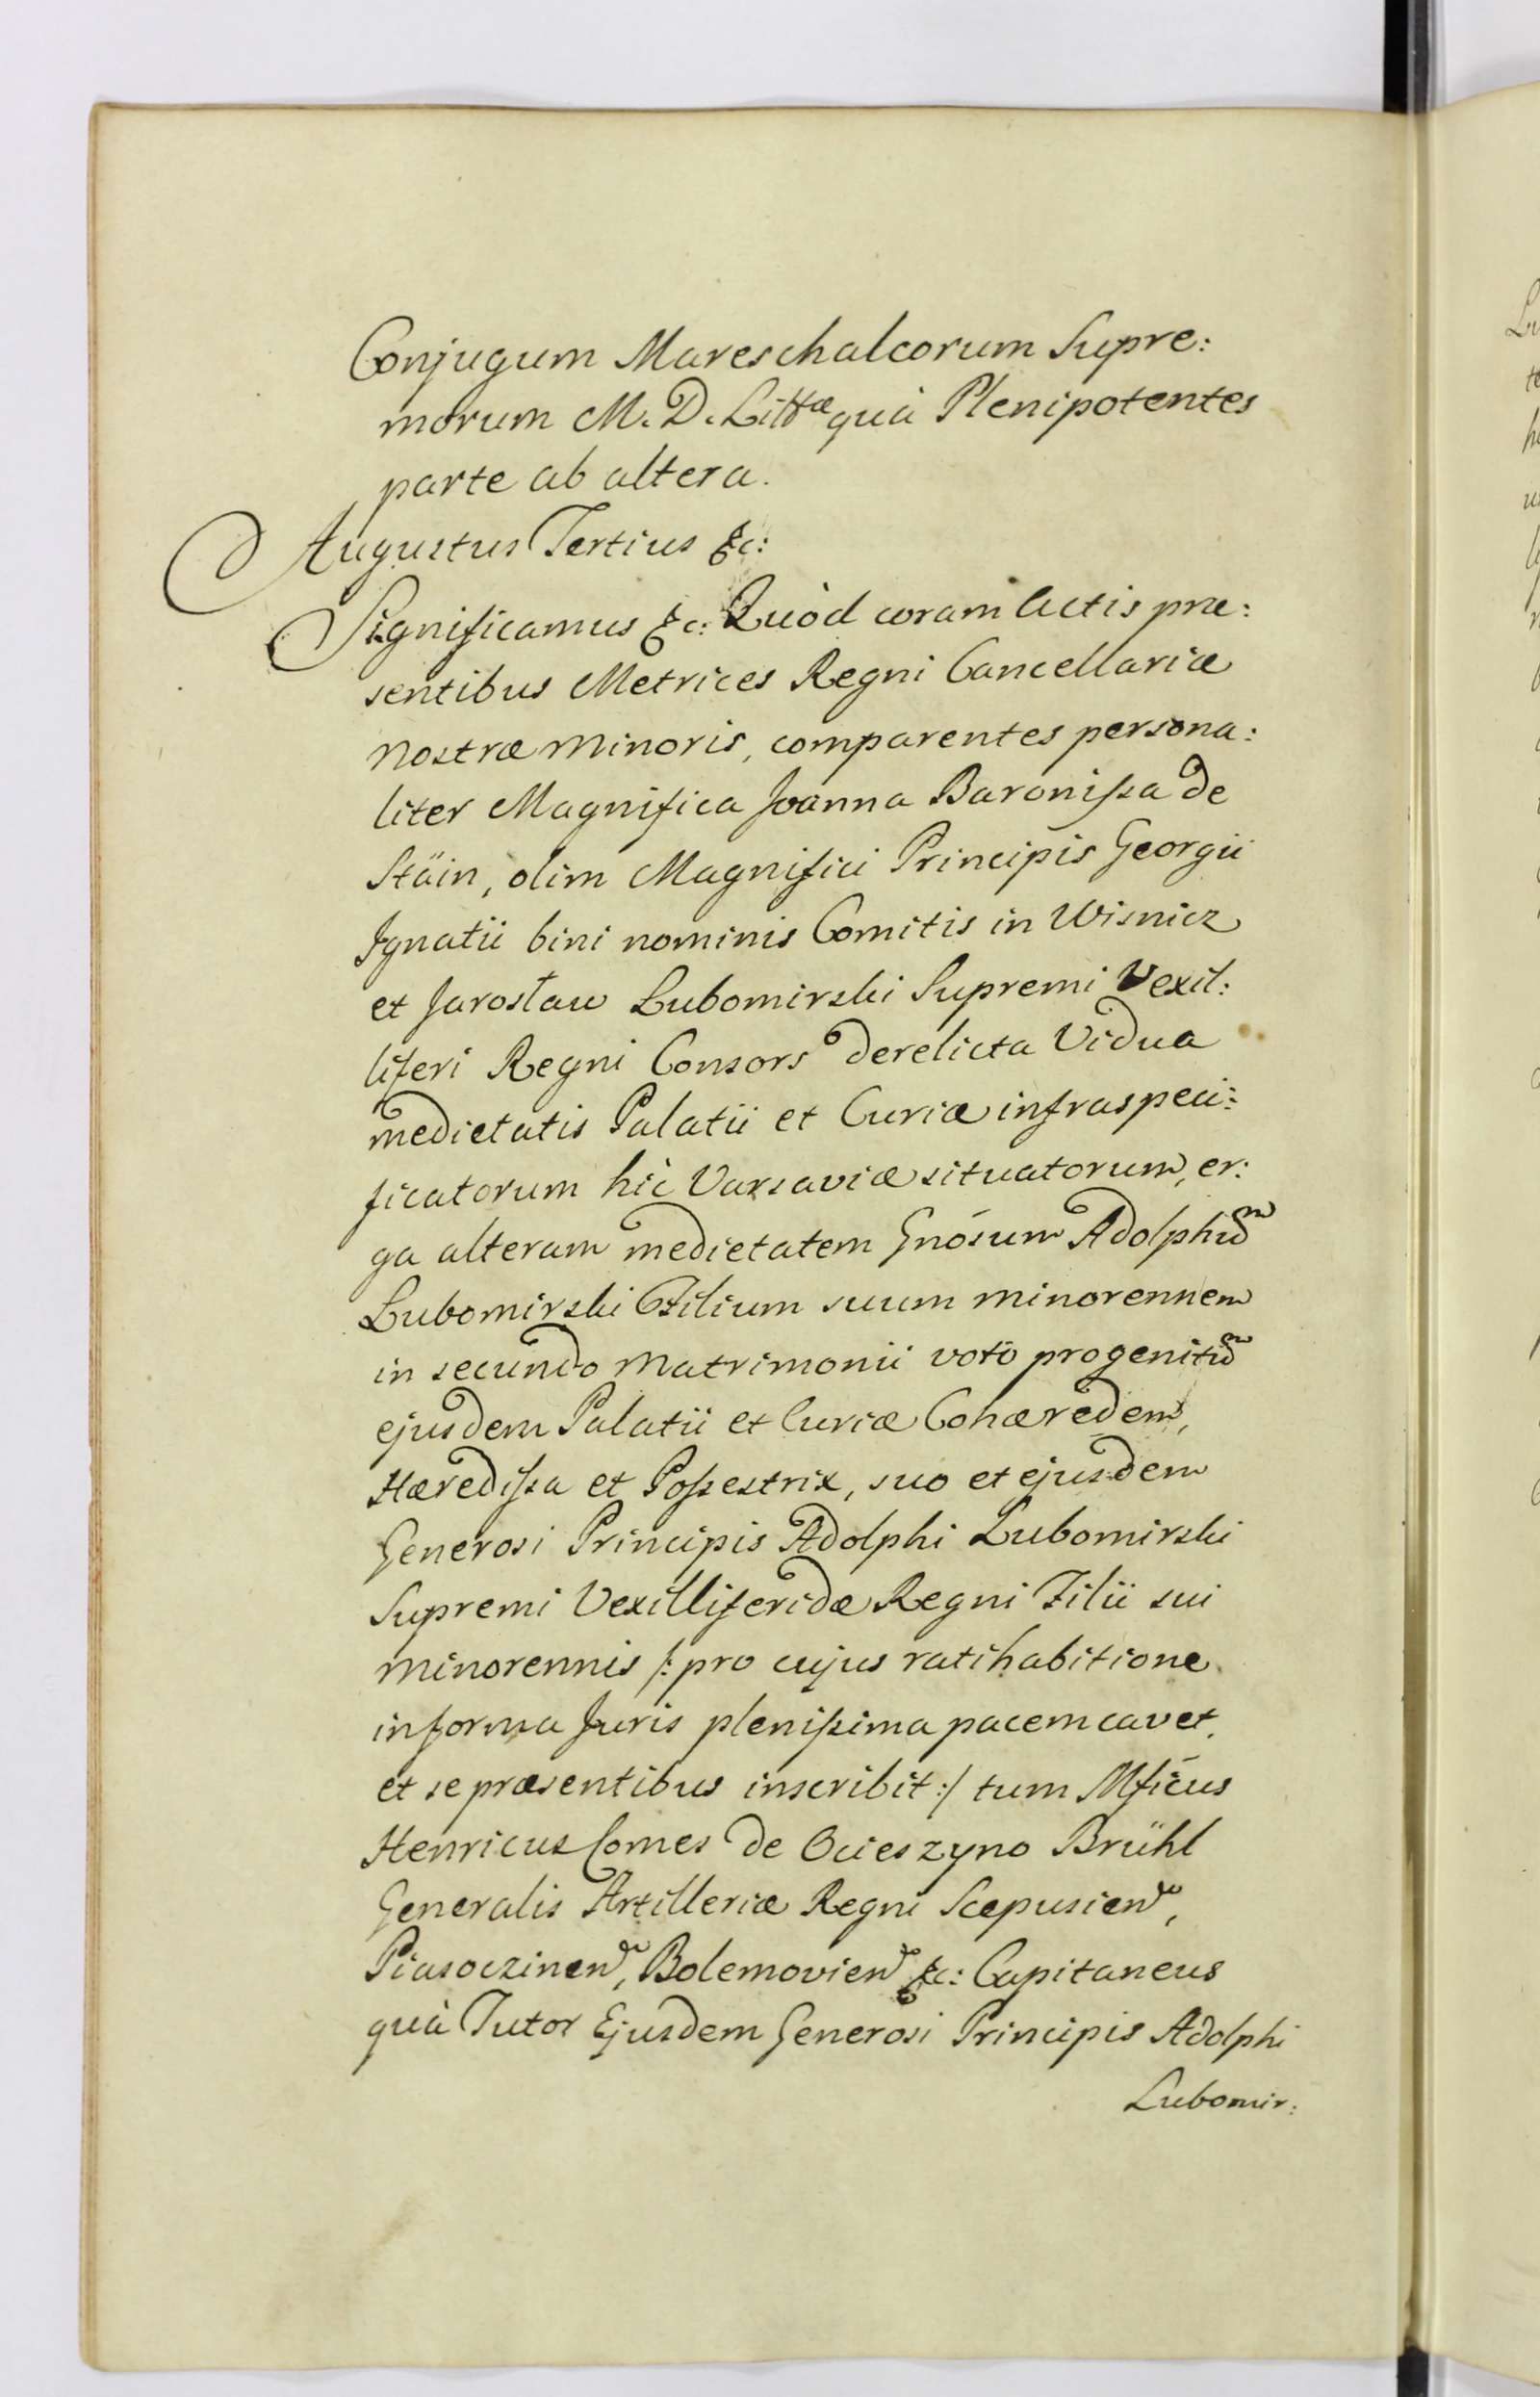 Conjugum Mareschalcorum Supre:
morum M. D. Littæ quà Plenipotentes
parte ab altera.
Augustus Tertius &c:
Significamus &c: Quòd coram Actis præ:
sentibus Metrices Regni Cancellariæ
nostræ minoris, comparentes persona:
liter Magnifica Joanna Baronissa de
Stäin, olim Magnifici Principis Georgii
Ignatii bini nominis Comitis in Wisnicz
et Jarosław Lubomirski Supremi Vexil:
liferi Regni Consors derelicta Vidua
medietatis Palatii et Curiæ infraspeci:
ficatorum hìc Varsaviæ situatorum, er:
ga alteram medietatem Gnósum Adolphũ
Lubomirski Filium suum minorennem
in secundo matrimonii voto progenitũ
ejusdem Palatii et Curiæ Cohæredem,
Hæredissa et Possestrix, suo et ejusdem
Generosi Principis Adolphi Lubomirski
Supremi Vexilliferidæ Regni Filii sui
minorennis /: pro cujus ratihabitione
in forma Juris plenissima pacem cavet,
et se præsentibus inscribit :/ tum Mficus
Henricus Comes de Ocieszyno Brühl
Generalis Artilleriæ Regni Scepusien,
Piasoczinen, Bolemovien &c: Capitaneus
quà Tutor Ejusdem Generosi Principis Adolphi
Lubomir: